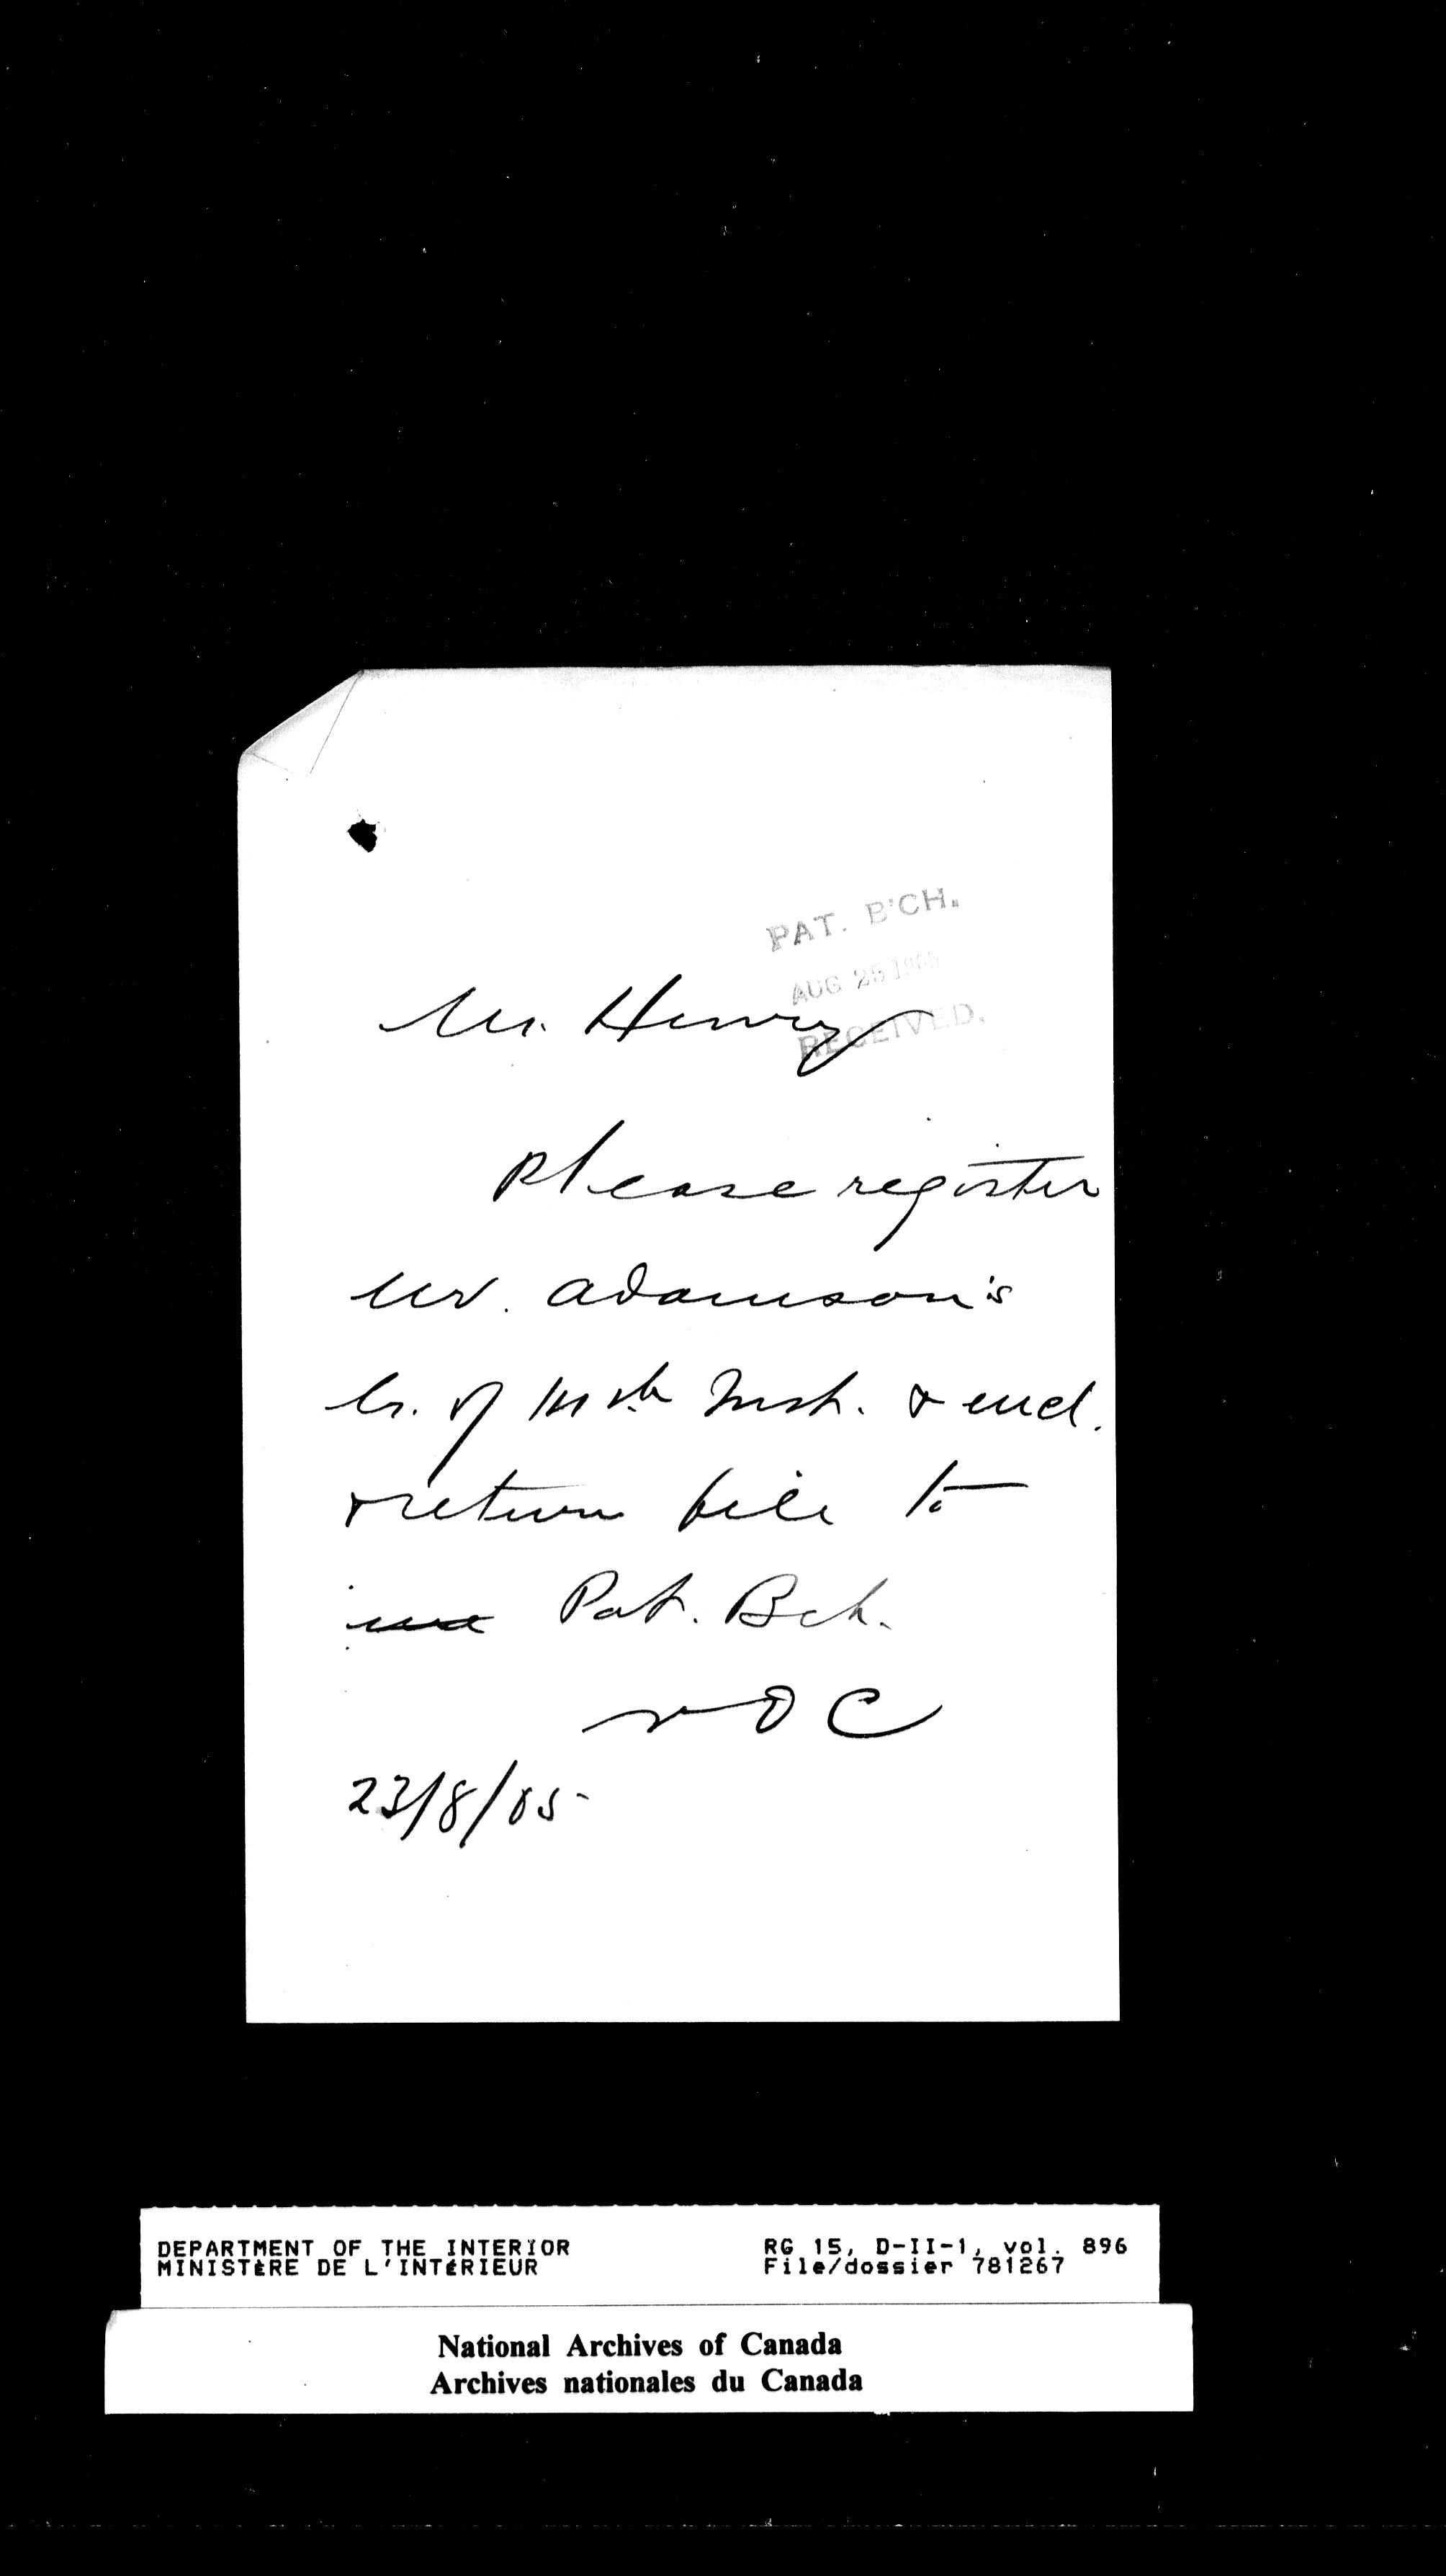 PAT. B'CH.
AUG 25 1905
RECEIVED.
Mr. Henry
Please register
Mr. Adamson's
lr. of inst. & encl.
& return file to
me Pat. Bch.
NOC
23/8/05
DEPARTMENT OF THE INTERIOR
MINISTÈRE DE L'INTÉRIEUR
RG 15, D-II-1, vol. 896
File/dossier 781267
National Archives of Canada
Archives nationales du Canada